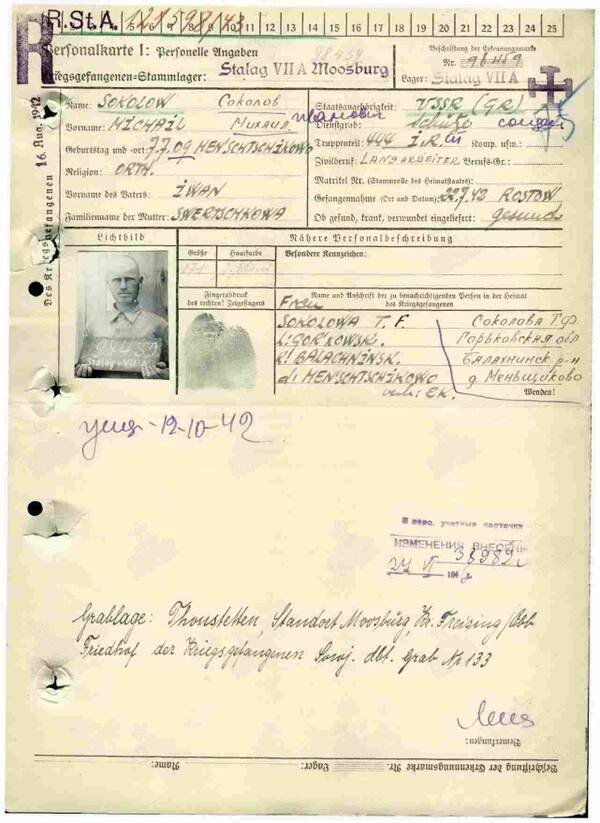 R.St.A. 121598/43
1 2 3 4 5 6 7 8 9 10 11 12 13 14 15 16 17 18 19 20 21 22 23 24 25
R
Personalkarte I: Personelle Angaben
Kriegsgefangenen-Stammlager: Stalag VII A Moosburg
98459
Beschriftung der Erkennungsmarke
Nr. 98459
Lager: Stalag VII A
Des Kriegsgefangenen
16. Aug. 1942
Name: SOKOLOW Соколов
Vorname: MICHAIL Михаил Иванович
Geburtstag und -ort: 7.7.09 MENSCHTSCHIKOWO
Religion: ORTH.
Vorname des Vaters: IWAN
Familienname der Mutter: SWERTSCHKOWA
Staatsangehörigkeit: USSR (GR)
Dienstgrad: Schütze солдат
Truppenteil: 444 I.R. Komp. usw.:
Zivilberuf: LANDARBEITER Berufs-Gr.:
Matrikel Nr. (Stammrolle des Heimatstaates):
Gefangennahme (Ort und Datum): 22.7.42 ROSTOW
Ob gesund, krank, verwundet eingeliefert: gesund
Lichtbild
98459
Stalag VII A
Nähere Personalbeschreibung
Größe Haarfarbe Besondere Kennzeichen:
171
Fingerabdruck
des rechten! Zeigefingers
Name und Anschrift der zu benachrichtigenden Person in der Heimat
des Kriegsgefangenen
Frau
SOKOLOWA T. F. Соколова Т.Ф.
GOR'KOWSKI. Горьковская обл
BALACHNINSK. Балахнинск. р-н
d. MENSCHTSCHIKOWO д. Меньщиково
Wenden!
12-10-42
В перс. учетные карточки
ИЗМЕНЕНИЯ ВНЕСЕНЫ
Grablage: Thonstetten, Standort Moosburg, Kr. Freising/Obb
Friedhof der Kriegsgefangenen Sowj. Abt. Grab Nr 133
Bemerkungen:
Beschriftung der Erkennungsmarke Nr. Lager:
Personalkarte I: Personelle Angaben